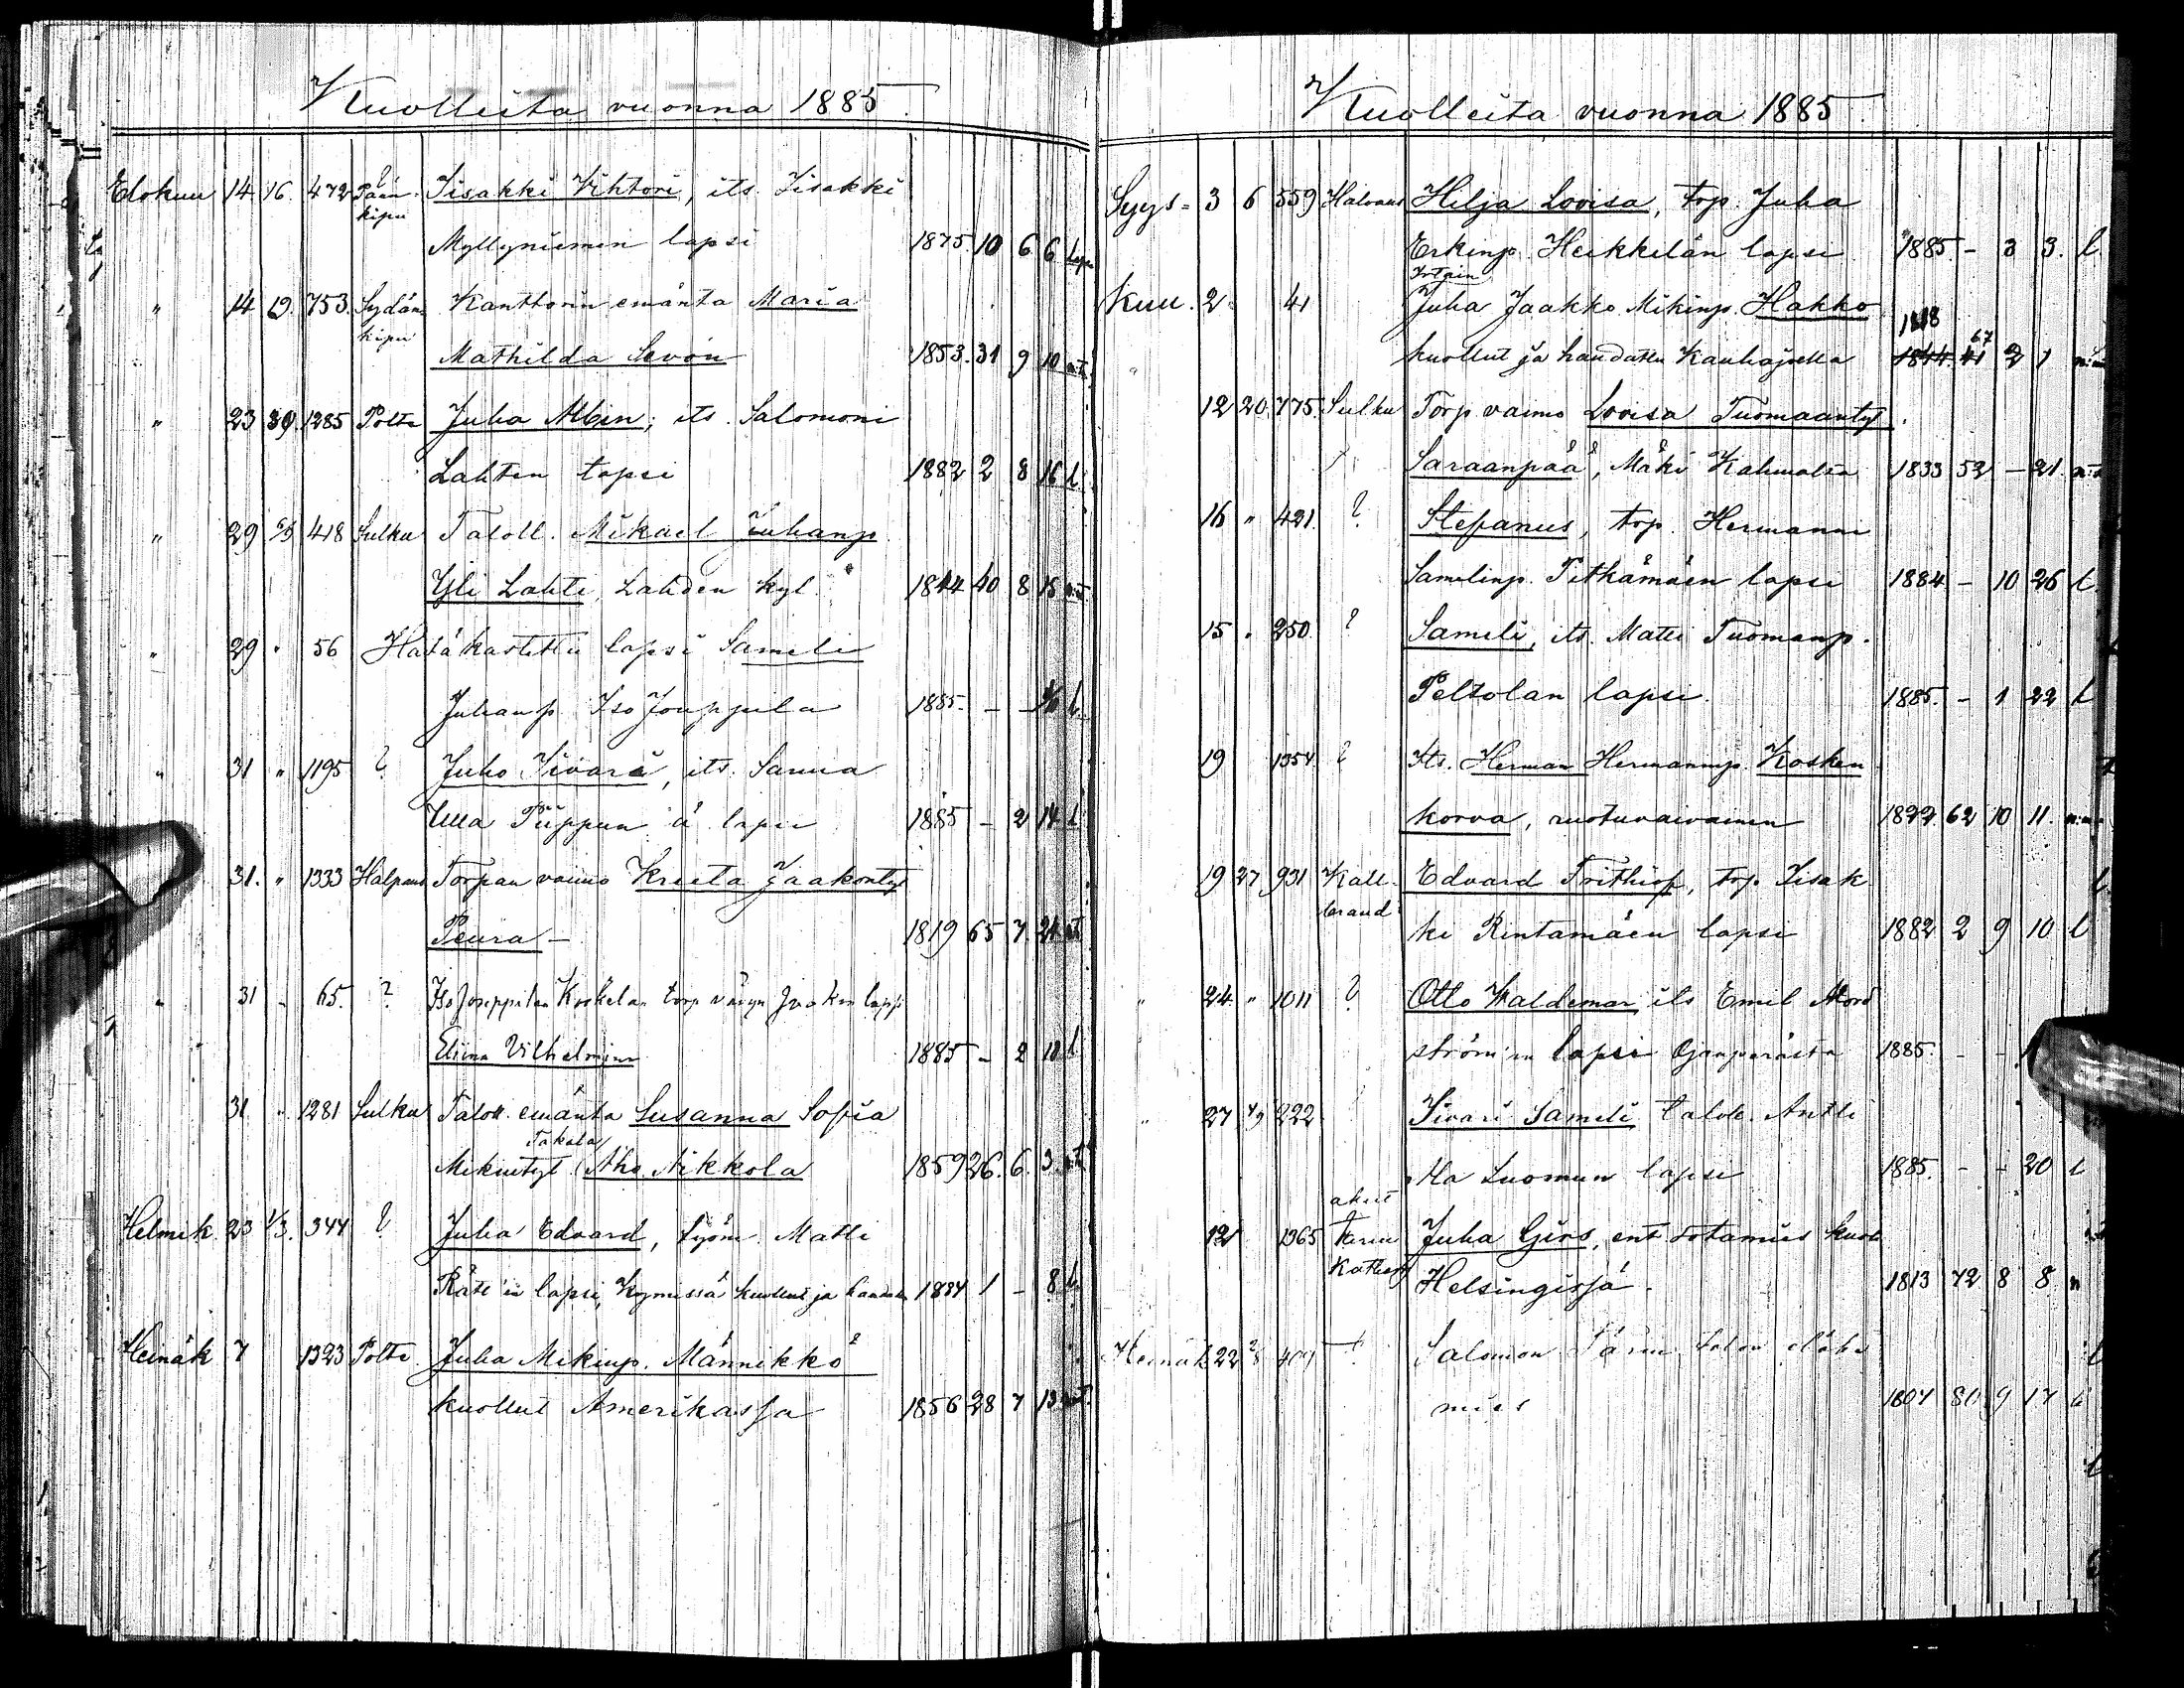 Kuolleita vuonna 1885
Elokuu 14 16. 472 Pään- Iisakki Vihtori, its. Iisakki
kipu
Myllyniemen lapsi 1875. 10 6 6 Lapsi
" 14 19. 753. Sydän- Kanttorin emäntä Maria
kipu
Mathilda Sevón 1853. 31 9 10 n:t.
" 23 30. 1285 Poltt. Juha Albin; its. Salomoni
Lahten lapsi 1882 2 8 16 l.
" 29 6/9 418 Sulku Taloll. Mikael Juhanp.
Yli Lahti, Lahden kyl. 1844 40 8 15
" 29 " 56 Hätäkastettu lapsi Sameli
Juhanp. Iso Jouppila 1885. - - l.
" 31 " 1195 ? Juho Iivari, its. Sanna
Ulla Piippun ä. lapsi 1885 - 2 14 l
31. " 1333 Halpaus Torpan vaimo Kreeta Jaakontyt
Peura - 1819 65 7. 24 n:t
" 31 - 65. ? Iso Jouppilan Koskelan torp vävyn Jaakon laps
Eliina Vilhelmiina 1885 - 2 10 l
31 " 1281 Sulku Talon emäntä Susanna Sofia
Takala
Mikintyt. (Aho Nikkola 1859 26. 6. 3.
Helmik. 23 1/3. 344 ? Juha Edvard, työm. Matti
Rati'in lapsi, Kymissä kuollut ja haudatt. 1884 1 - 8 l.
Heinäk 7 1323 Poltt. Juha Mikinp. Männikkö
kuollut Amerikassa 1856 28 7 13
Kuolleita vuonna 1885.
Syys- 3 6 559 Halvaus Hilja Lovisa, trp. Juha
Erkinp. Heikkilän lapsi 1885. - 3 3. l.
Kuu. 2 41 Juha Jaakko Mikinp. Hakko 1818
67
kuollut ja haudattu Kauhajoella 1844. 41 2 1
12 20. 775. Sulku Torp. vaimo Lovisa Tuomaantyt.
Saraanpää, Mäki Kahmalta 1833 52 - 21.
16 " 421. ? Stefanus, trp. Hermanni
Samelinp. Pitkämäen lapsi 1884 - 10 26 l.
15 " 250. ? Sameli, its. Matti Tuomanp.
Peltolan lapsi. 1885. - 1 22 l
19 1354. ? Its. Herman Hermanninp. Kosken
korva, ruotuvaivainen 1822. 62 10 11.
19 27 931 Kall- Edvard Frithiof, trp. Iisak
brand
ki Rintamäen lapsi 1882 2 9 10 l
" 24. " 1011 ? Otto Waldemar its Emil Nord
ström'in lapsi Ojanperästä 1885. - -
" 27 222 Iivari Sameli taloll. Antti
Ala Luomun lapsi 1885. - - 20 l
akut
12 1365 Tarm Juha Girs, ent sotamies kuoli
Katharr
Helsingissä. 1813 72 8 8. n
Heinäk 22 409 ? Salomon talon
mies 1804 80 9 17